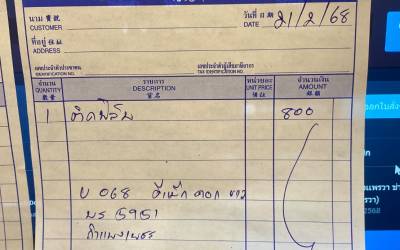 นาม 寶號
CUSTOMER
วันที่ 日期
DATE 21/2/68
ที่อยู่ 住址
ADDRESS
เลขประจำตัวประชาชน
IDENTIFICATION NO.
เลขประจำตัวผู้เสียภาษีอากร
TAX IDENTIFICATION NO.
จำนวน
QUANTITY
數量
รายการ
DESCRIPTION
貨名
หน่วยละ
UNIT PRICE
價估
จำนวนเงิน
AMOUNT
銀額
1 ติดฟิล์ม 800
U 068 ดีแม็ก ตอก ขาว
กำแพงเพชร